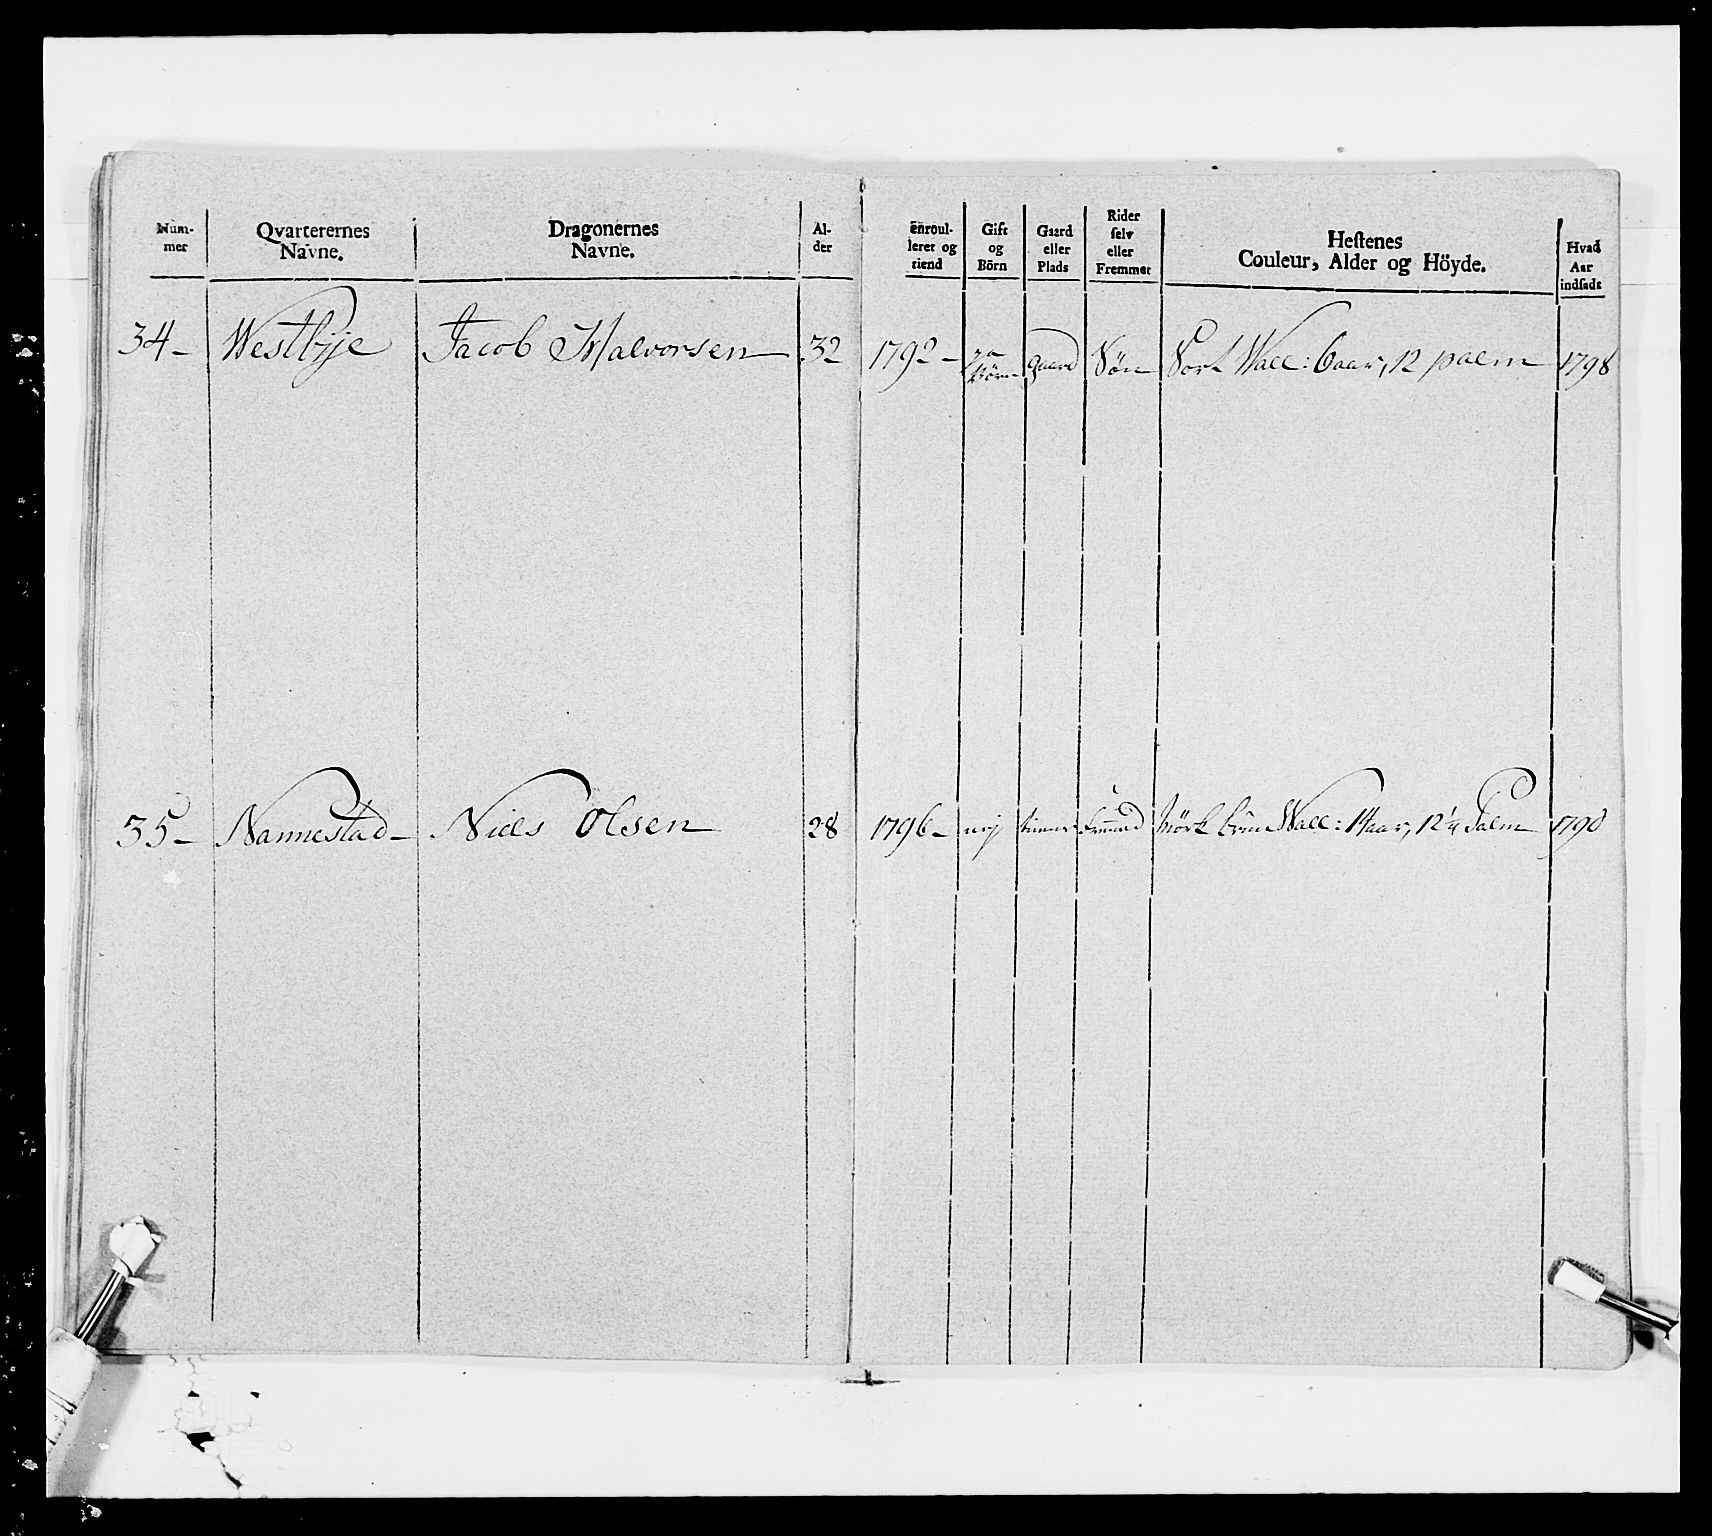 Num-
mer
Qvarterernes
Navne.
Dragonernes
Navne.
Al-
der
Enroul-
leret og
tiend
Gift
og
Börn
Gaard
eller
Plads
Rider
selv
eller
Fremmet
Hestenes
Couleur, Alder og Höyde.
Hvad
Aar
indsadt
34 - Westbye Jacob Halvorsen 32 1792 - Ja Börn gaard Sön Sort Wall: 6 aar, 12 palm 1798
35 - Nannestad - Niels Olsen 28 1796 - nej tiener Fremmed Mörk brun Wall: 14 aar, 12 1/4 Palm 1790